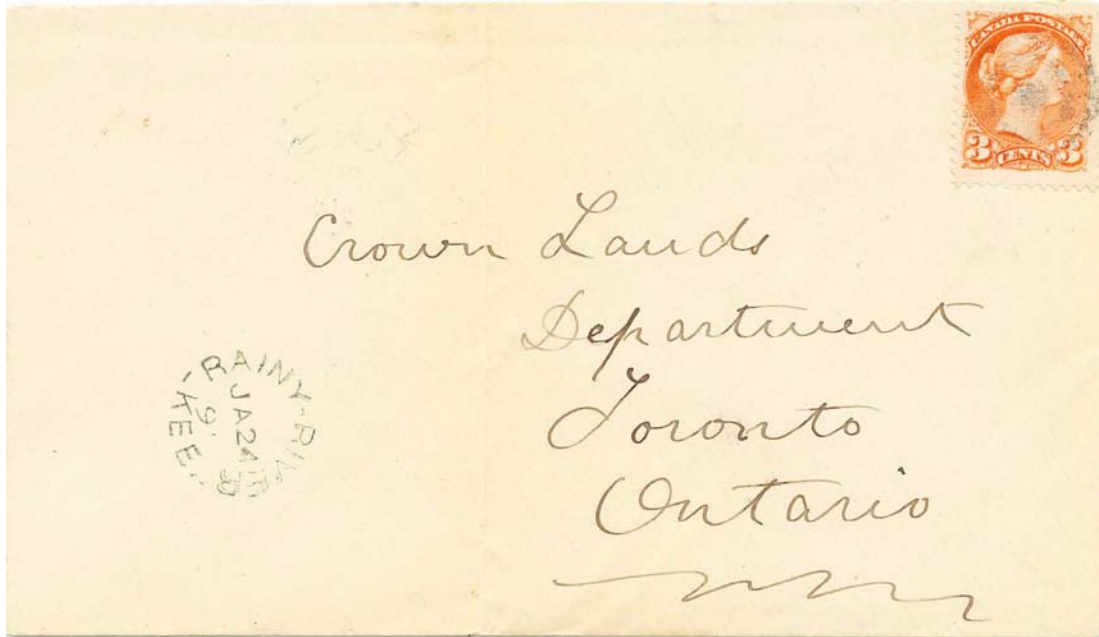 CANADA POSTAGE
3 CENTS 3
Crown Lands
Department
Toronto
Ontario
RAINY-RIVER
JA 24
KEE